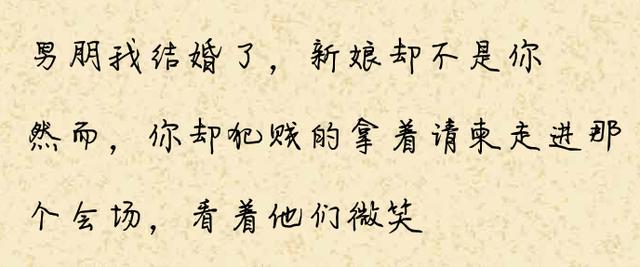 男朋我结婚了，新娘却不是你
然而，你却犯贱的拿着请柬走进那
个会场，看着他们微笑